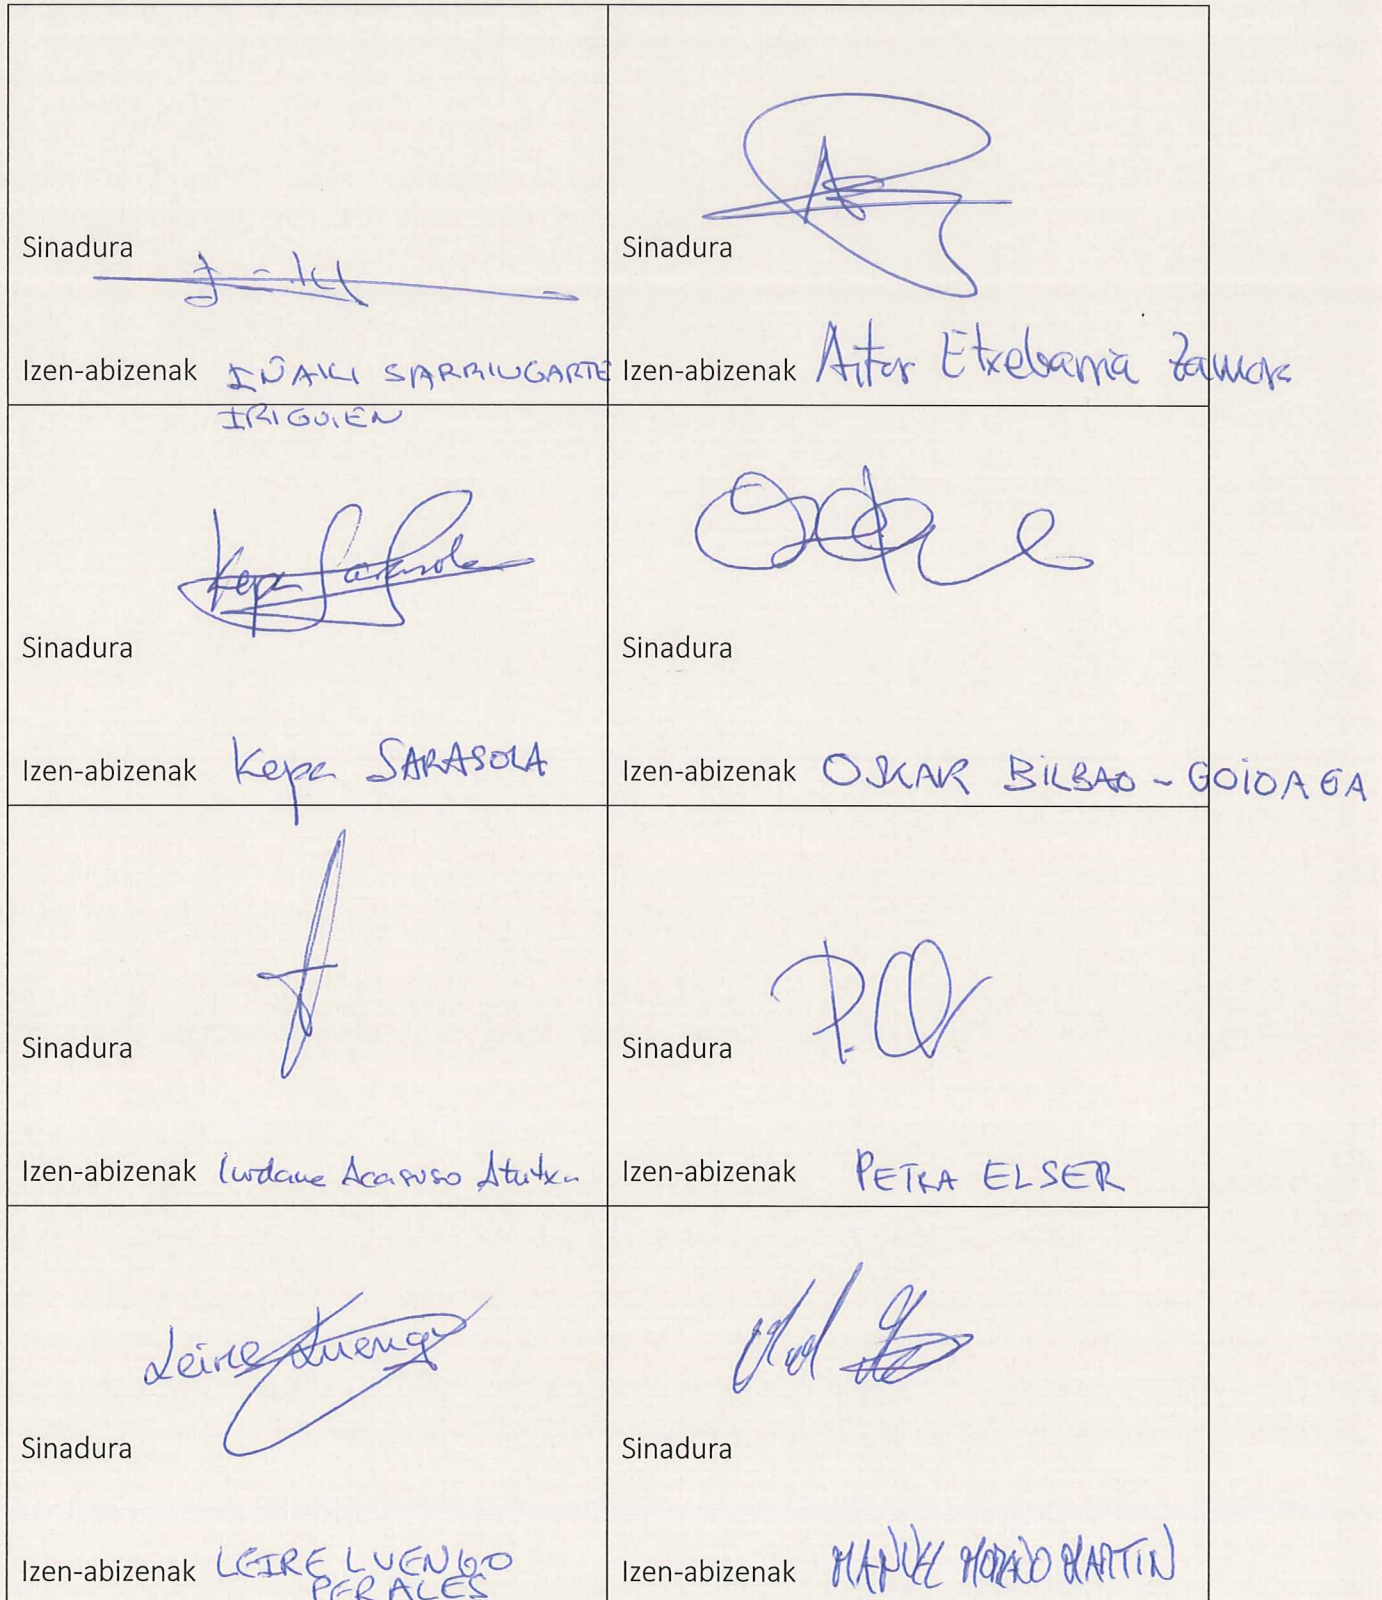 Sinadura
Izen-abizenak IÑAKI SARRIUGARTE
IRIGOIEN
Sinadura
Izen-abizenak Aitor Etxebarria Zamora
Kepa Sarasola
Sinadura
Izen-abizenak Kepa SARASOLA
Sinadura
Izen-abizenak OSKAR BILBAO - GOIOAGA
Sinadura
Izen-abizenak Iurdana Acasuso Atutxa
Sinadura
Izen-abizenak PETRA ELSER
Leire Luengo
Sinadura
Izen-abizenak LEIRE LUENGO
PERALES
Sinadura
Izen-abizenak MANUEL MORENO MARTIN